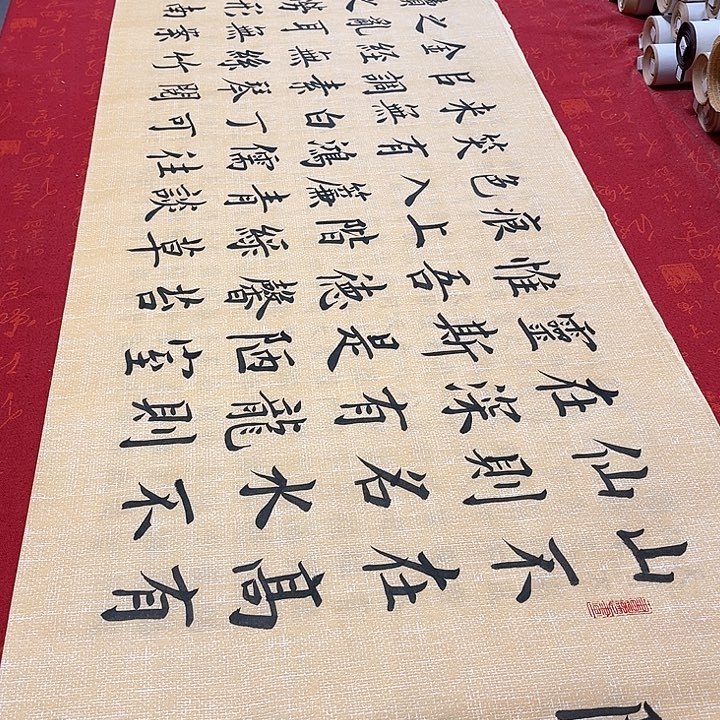 山不在高有
仙則名水不
在深有龍則
靈斯是陋室
惟吾德馨苔
痕上階綠草
色入簾青談
笑有鴻儒往
来無白丁可
㠯調素琴閱
金經無絲竹
之亂耳無案
牘之勞形南